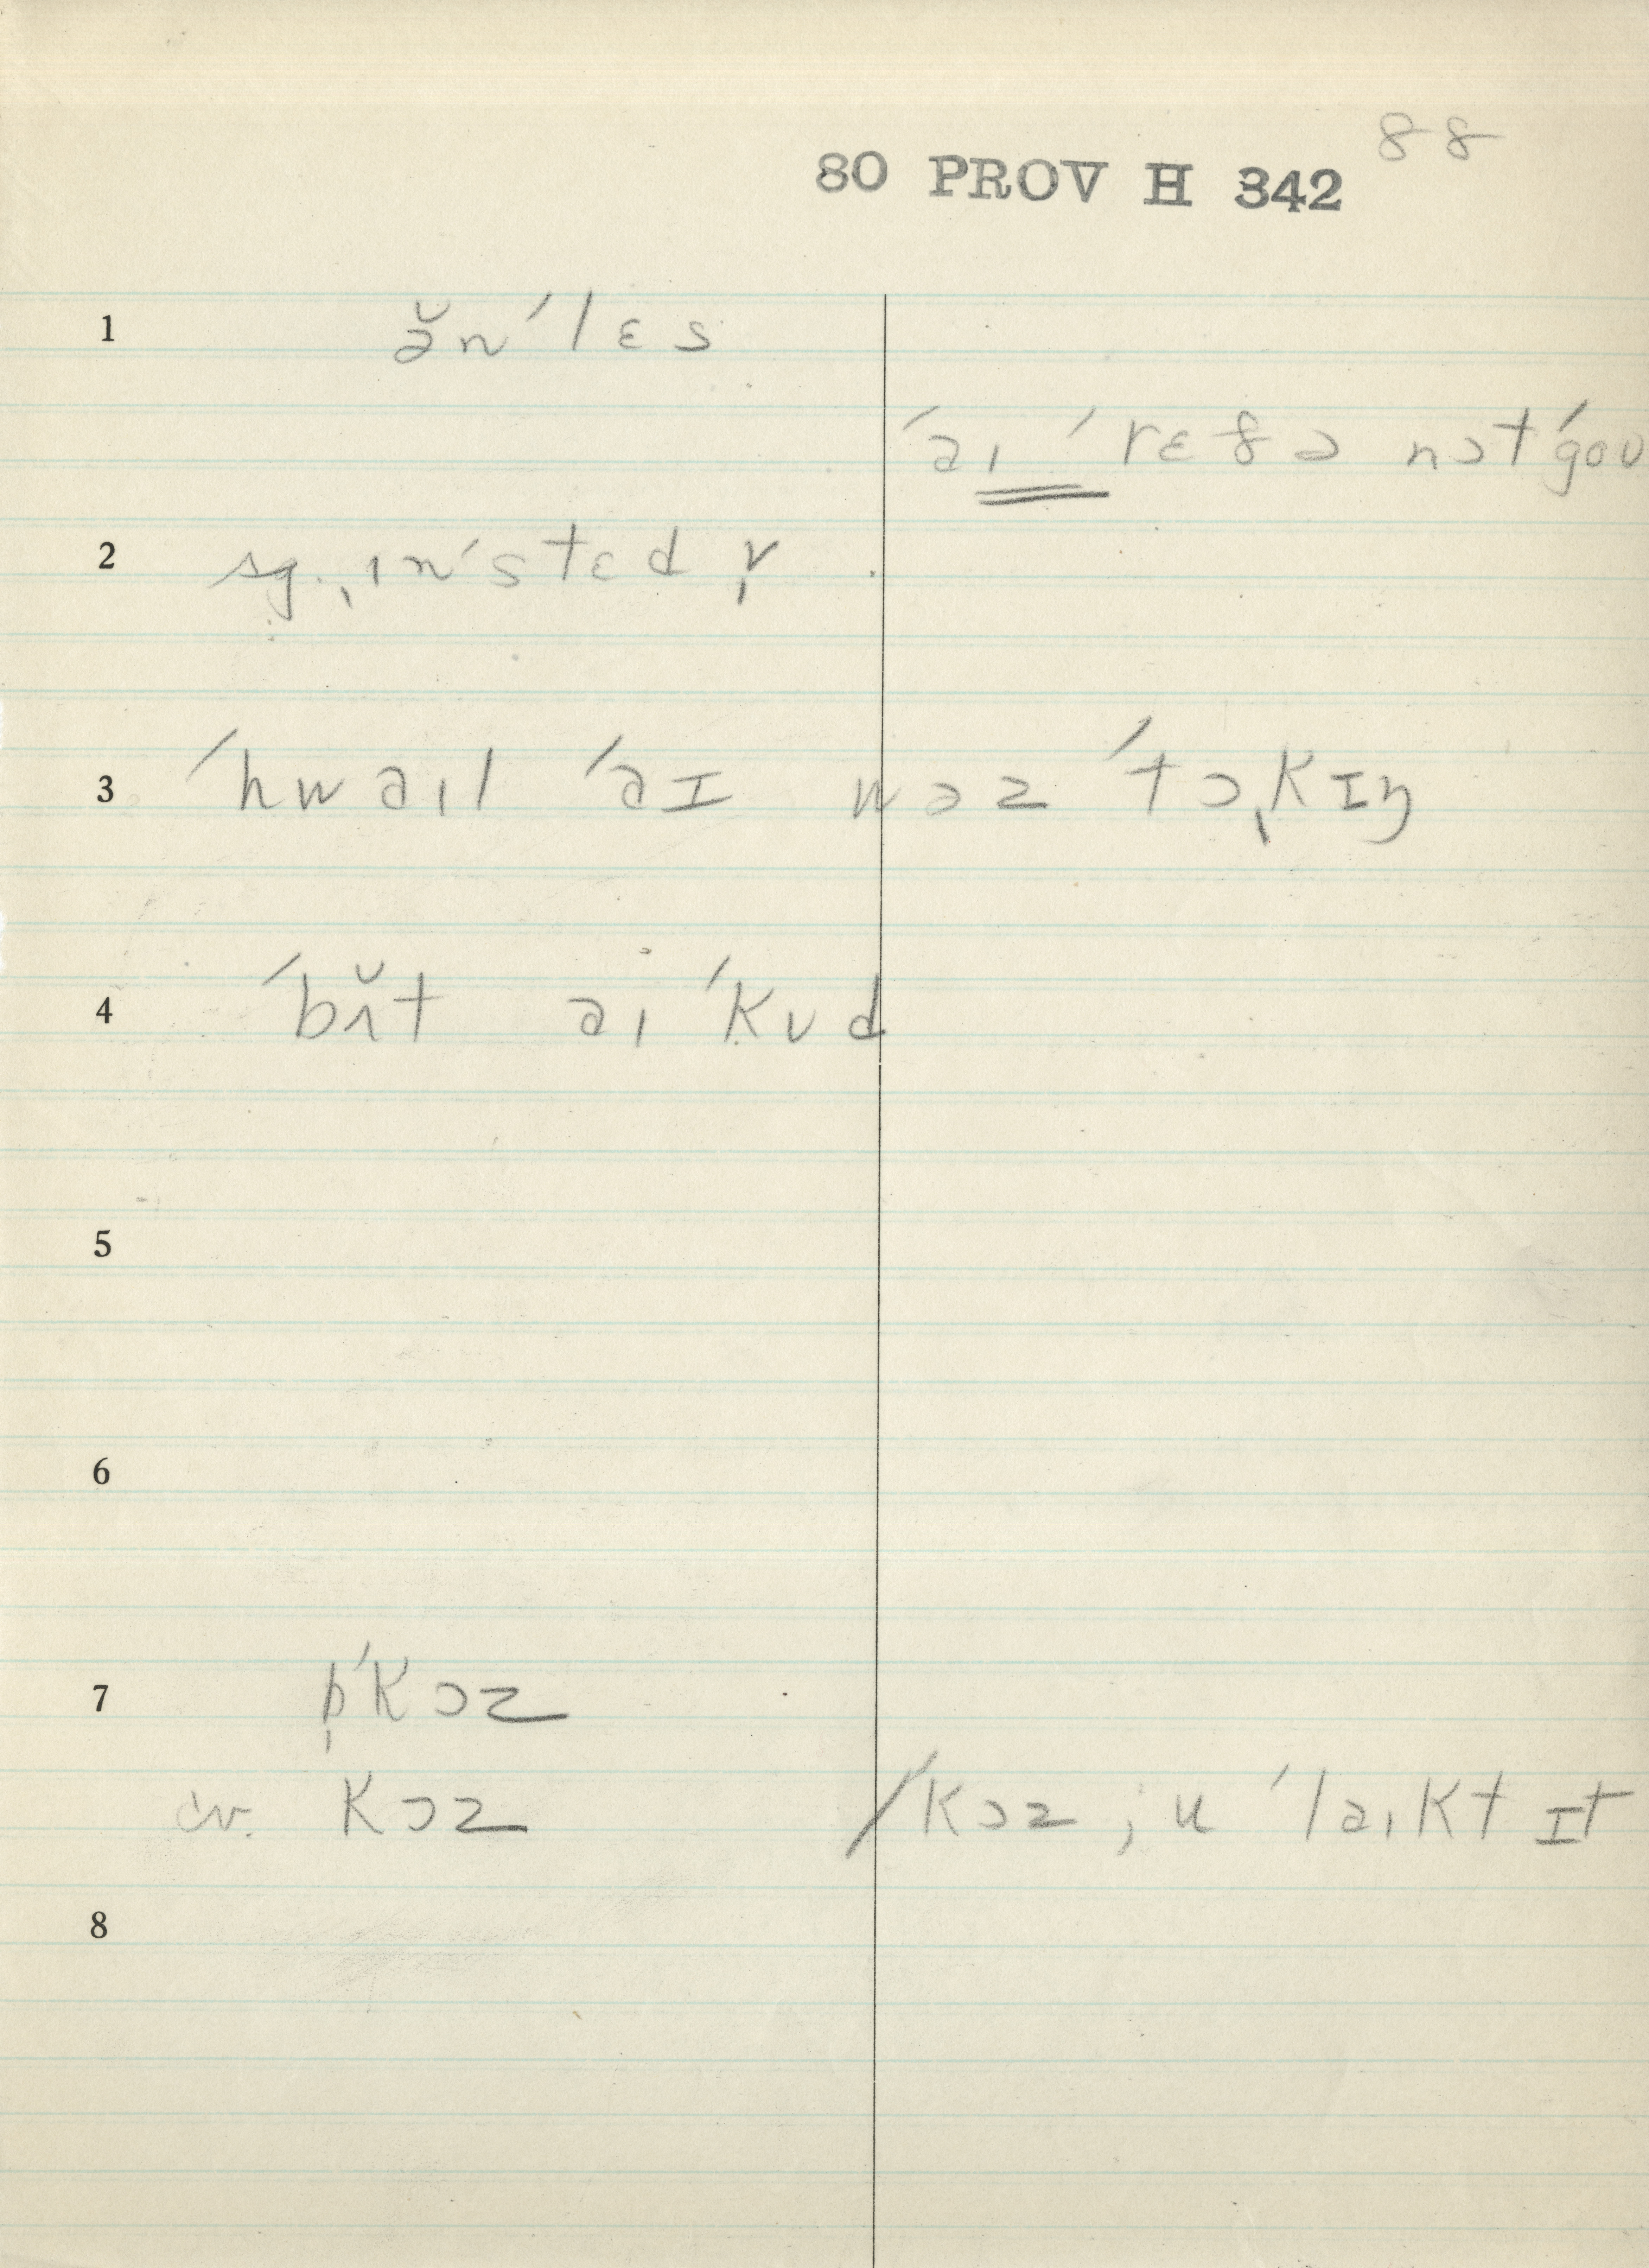 88
80 PROV H 342
1 ə̆n ˈlɛs
ˈaɪ ˈrɛðə nɔt ˈgoʊ
2 sg. ɪn ˈstɛd ṿ
3 ˈhwaɪl ˈaɪ wəz ˈtɔˌkɪŋ
4 ˈbʌ̆t aɪ ˈkʊd
5
6
7 b̩ˈkɔz
cv. kɔz
ˈkɔz ju ˈlaɪkt ɪt
8